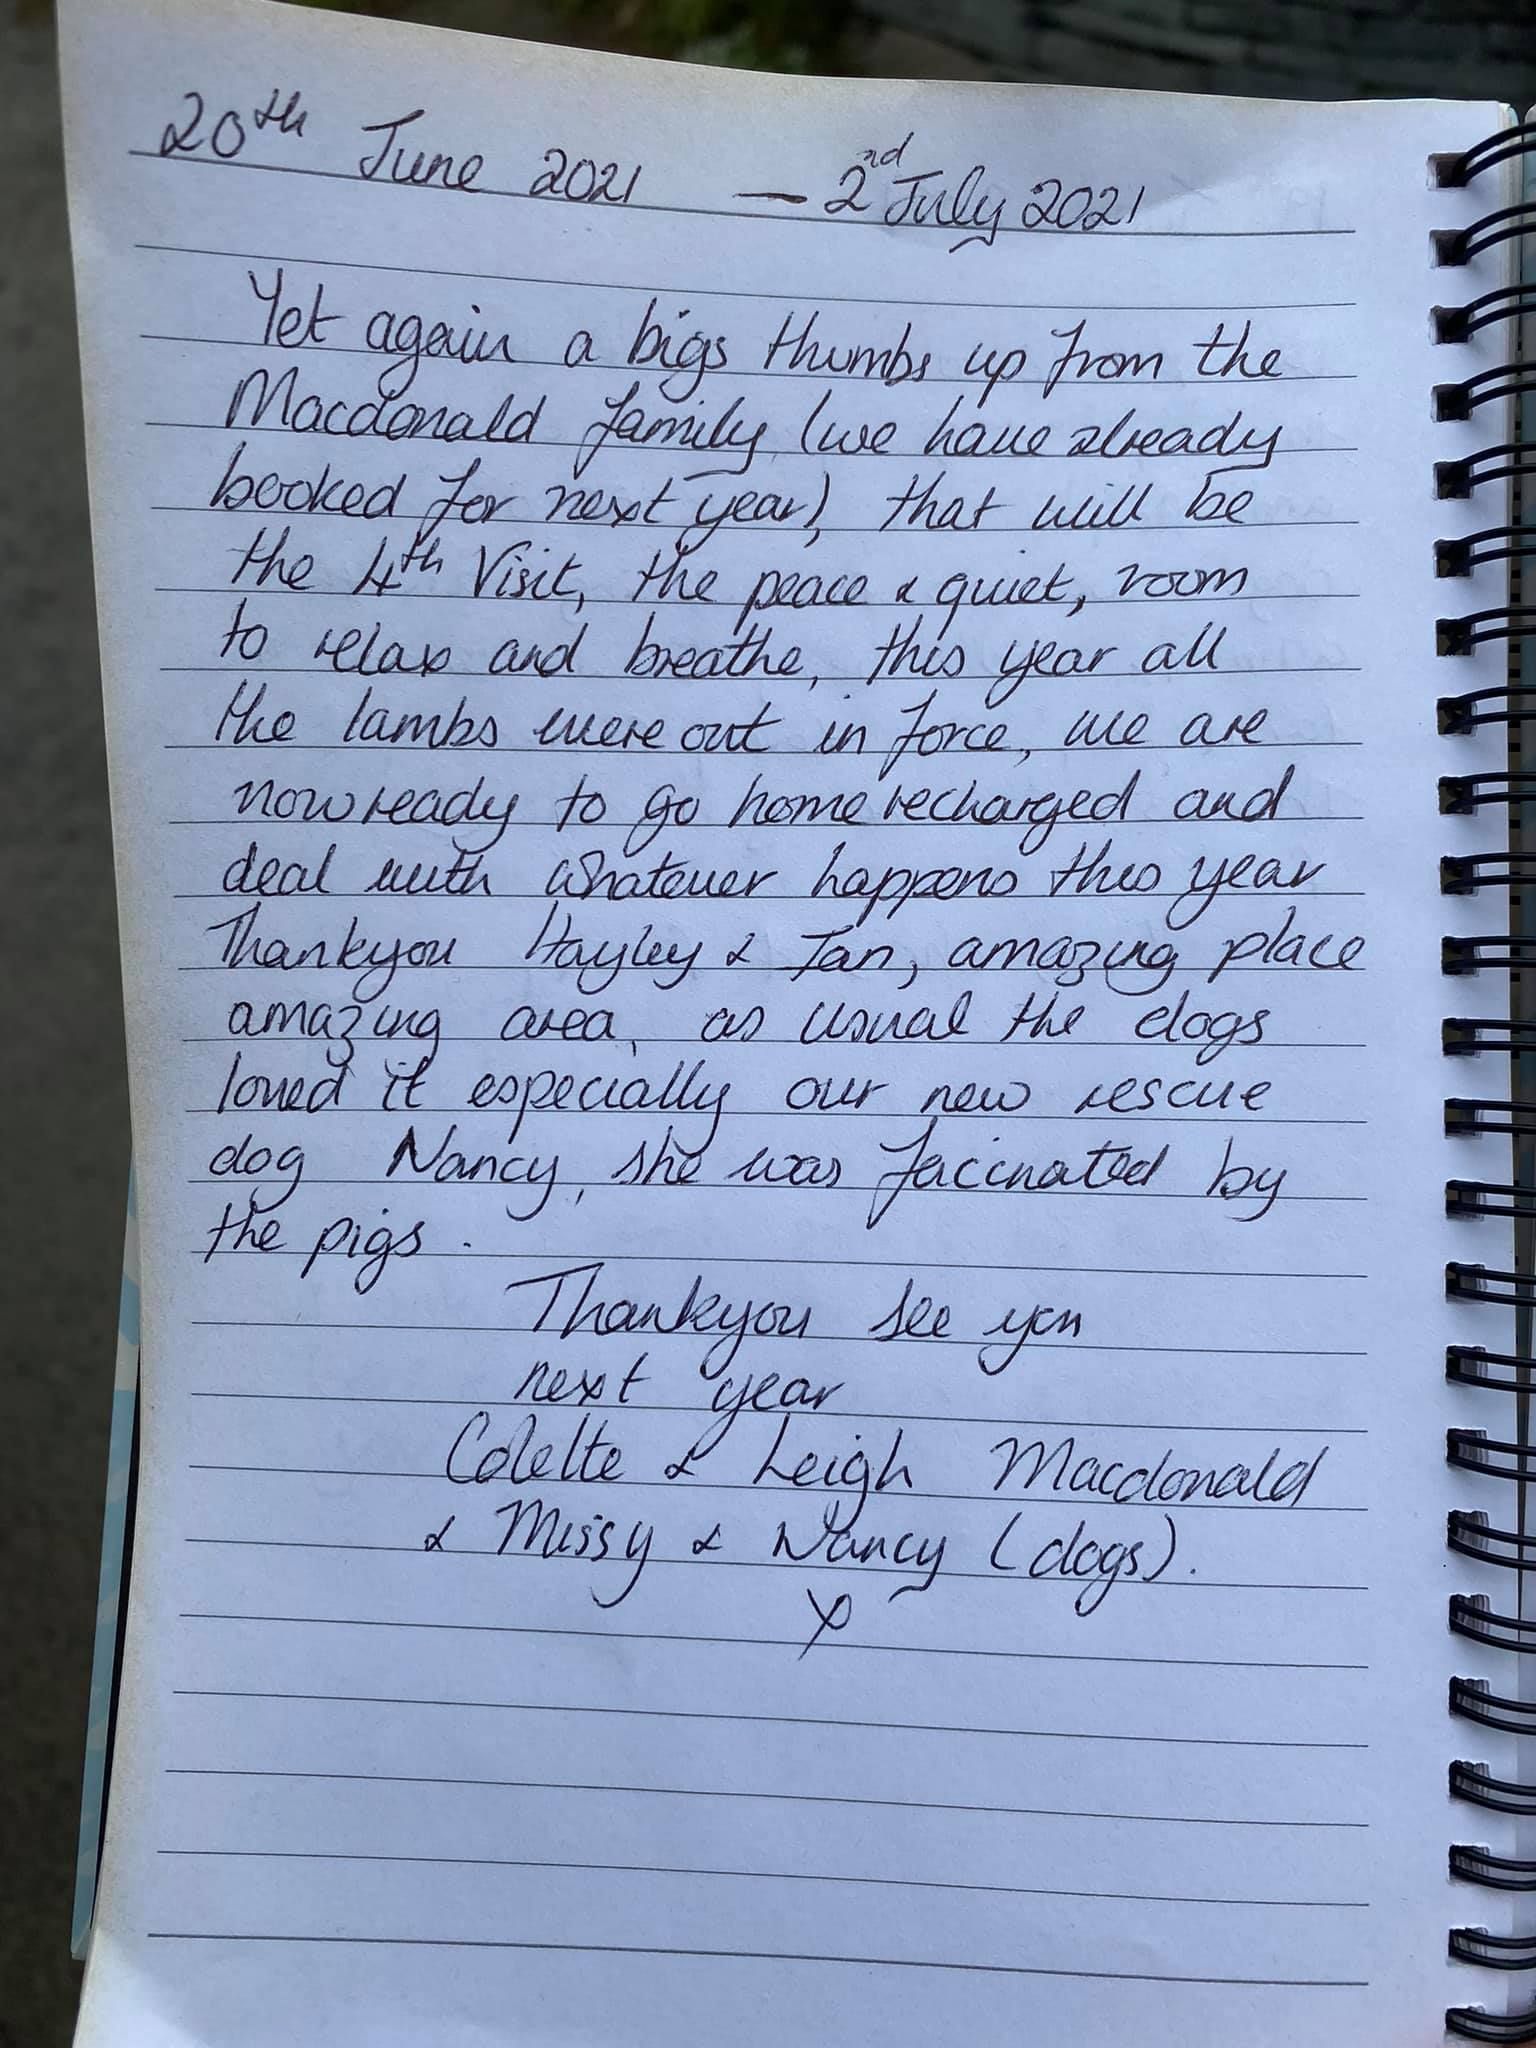 20th June 2021 — 2nd July 2021
Yet again a bigs thumbs up from the
Macdonald family (we have already
booked for next year), that will be
the 4th Visit, the peace & quiet, room
to relax and breathe, this year all
the lambs were out in force, we are
now ready to go home recharged and
deal with whatever happens this year
Thankyou Hayley & Ian, amazing place
amazing area, as usual the dogs
loved it especially our new rescue
dog Nancy, she was faccinated by
the pigs.
Thankyou see you
next year
Colette & Leigh Macdonald
& Missy & Nancy (dogs).
x